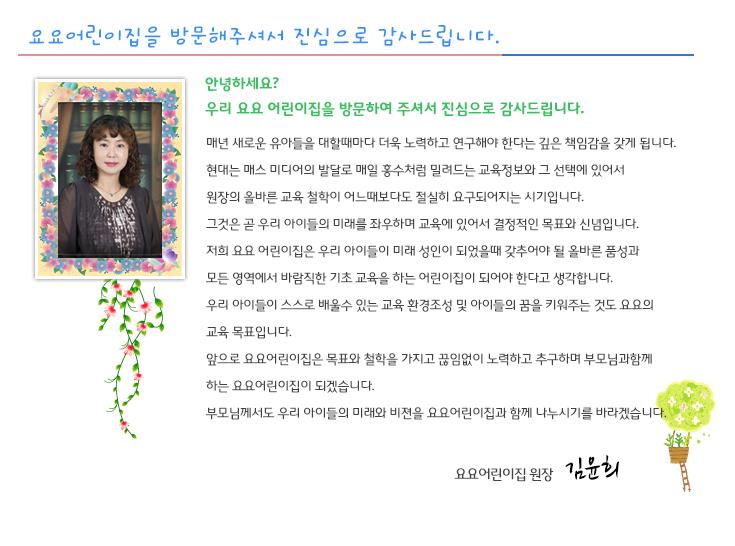 요요어린이집을 방문해주셔서 진심으로 감사드립니다.
안녕하세요?
우리 요요 어린이집을 방문하여 주셔서 진심으로 감사드립니다.
매년 새로운 유아들을 대할때마다 더욱 노력하고 연구해야 한다는 깊은 책임감을 갖게 됩니다.
현대는 매스 미디어의 발달로 매일 홍수처럼 밀려드는 교육정보와 그 선택에 있어서
원장의 올바른 교육 철학이 어느때보다도 절실히 요구되어지는 시기입니다.
그것은 곧 우리 아이들의 미래를 좌우하며 교육에 있어서 결정적인 목표와 신념입니다.
저희 요요 어린이집은 우리 아이들이 미래 성인이 되었을때 갖추어야 될 올바른 품성과
모든 영역에서 바람직한 기초 교육을 하는 어린이집이 되어야 한다고 생각합니다.
우리 아이들이 스스로 배울수 있는 교육 환경조성 및 아이들의 꿈을 키워주는 것도 요요의
교육 목표입니다.
앞으로 요요어린이집은 목표와 철학을 가지고 끊임없이 노력하고 추구하며 부모님과함께
하는 요요어린이집이 되겠습니다.
부모님께서도 우리 아이들의 미래와 비젼을 요요어린이집과 함께 나누시기를 바라겠습니다.
요요어린이집 원장 김윤희